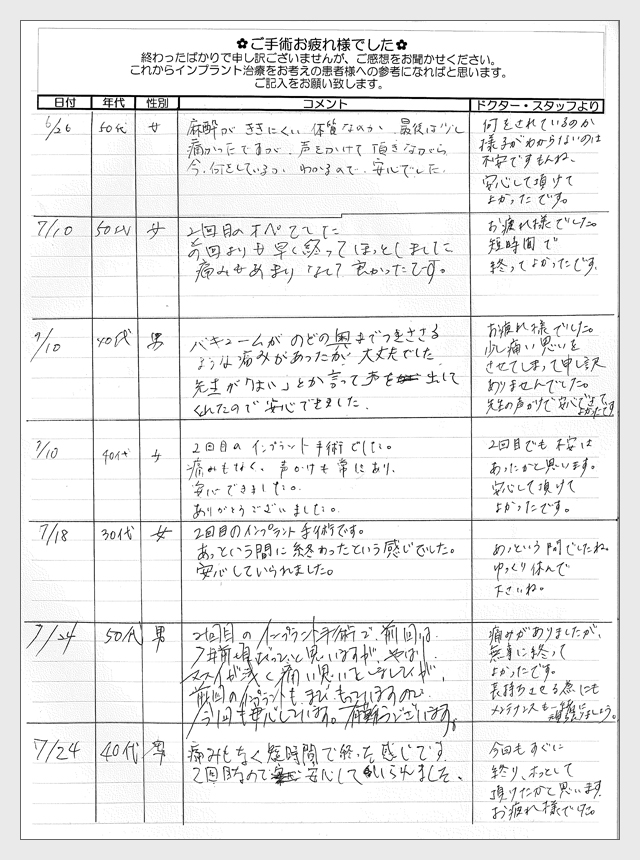 ✿ご手術お疲れ様でした✿
終わったばかりで申し訳ございませんが、ご感想をお聞かせください。
これからインプラント治療をお考えの患者様への参考になればと思います。
ご記入をお願い致します。
日付 年代 性別 コメント ドクター・スタッフより
6/26 50代 女
麻酔が ききにくい 体質なのか 最後は少し
痛かったですが、声をかけて頂きながら
今、何をしているか わかるので、安心でした。
何をされているのか
様子がわからないのは
不安ですもんね。
安心して頂けて
よかったです。
7/10 50代 女
2回目のオペでした
前回よりも早く終ってほっとしました
痛みもあまりなくて良かったです。
お疲れ様でした。
短時間で
終ってよかったです。
7/10 40代 男
バキュームが のどの奥までつきささる
ような痛みがあったが 大丈夫でした
先生が「はい」とか言って声を 出して
くれたので安心できました.
お疲れ様でした。
少し痛い思いを
させてしまって申し訳
ありませんでした。
先生の声がけで安心できて
よかったです
7/10 40代 女
2回目のインプラント手術でした。
痛みもなく、声かけも常にあり、
安心できました。
ありがとうございました。
2回目でも不安は
あったかと思います。
安心して頂けて
よかったです。
7/18 30代 女
2回目のインプラント手術です。
あっという間に終わったという感じでした。
安心していられました。
あっという間でしたね。
ゆっくり休んで
下さいね。
7/24 50代 男
2回目のインプラント手術で、前回は
7年前頃だったと思いますが、やはり
痛い思いをしましたが、
前回のインプラントも まだもっていますので
今回も安心しています。有難うございます。
痛みがありましたが、
無事に終って
よかったです。
長持ちさせる為にも
メンテナンスも一緒に
頑張りましょう。
7/24 40代 男
痛みもなく短時間で終った感じです
2回目なので 安心していられました。
今回もすぐに
終り、ホッとして
頂けたかと思います。
お疲れ様でした。